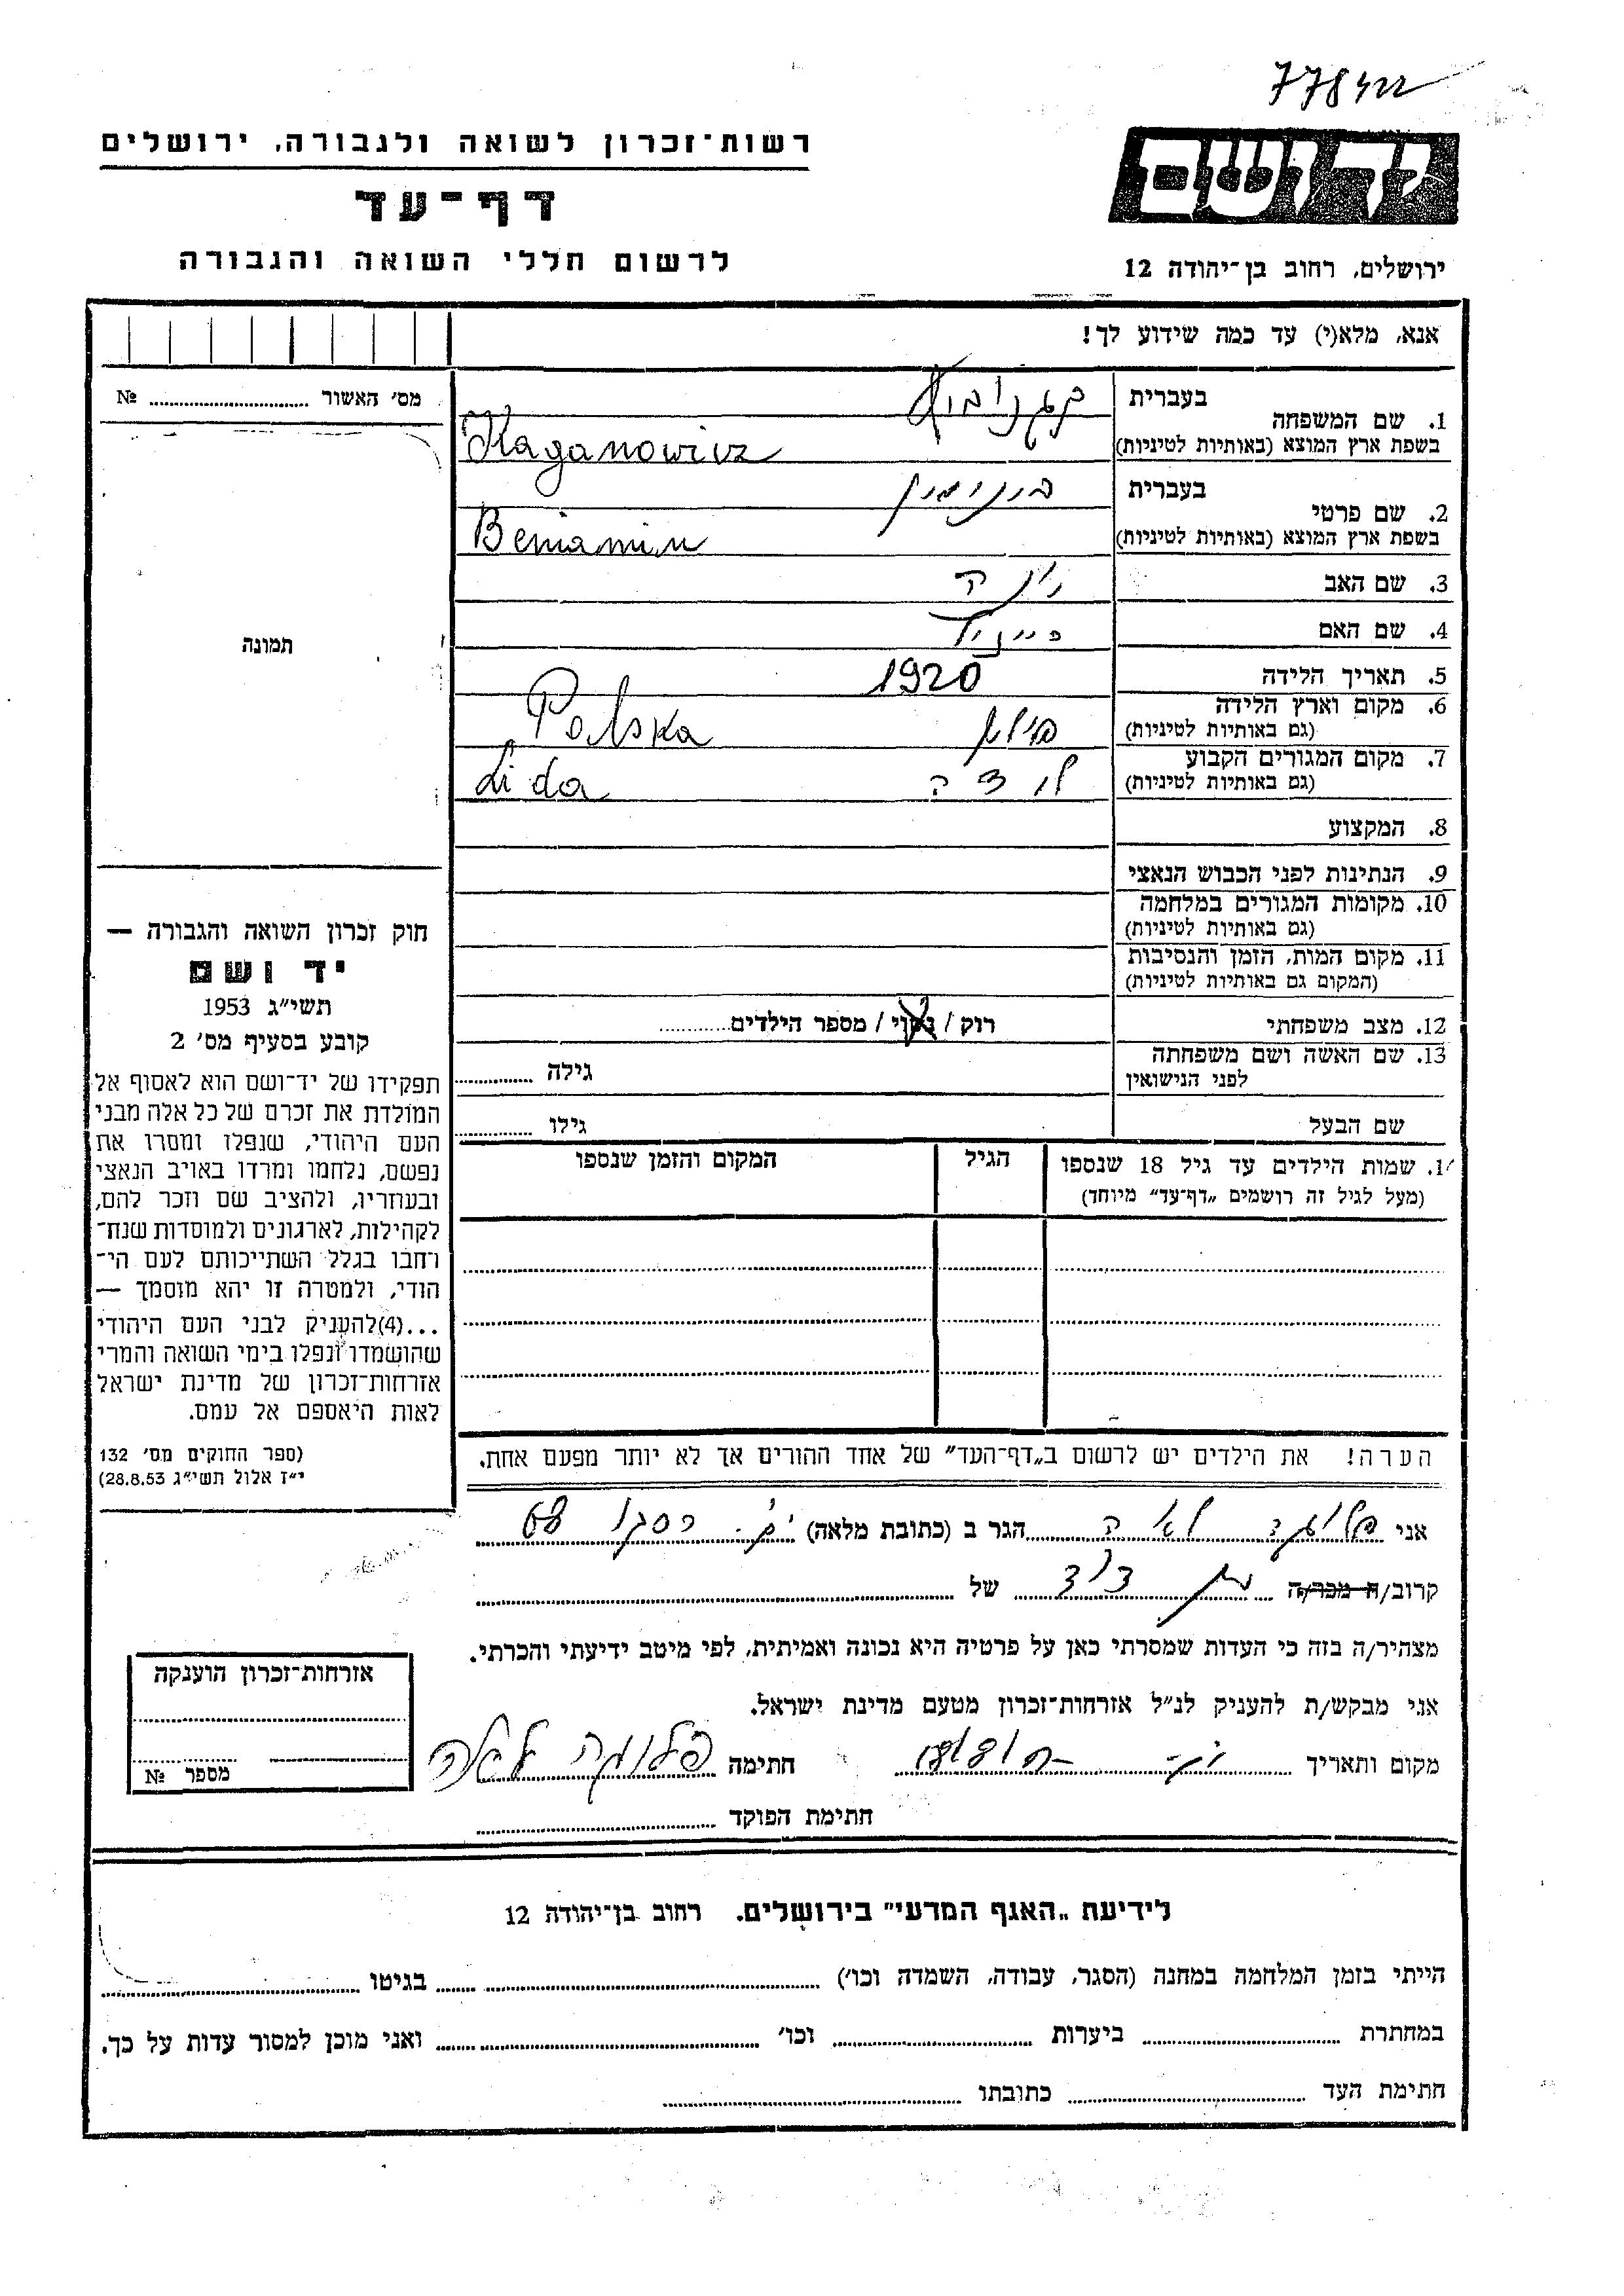 778422
רשות־זכרון לשואה ולגבורה, ירושלים
דף־עד
לרשום חללי השואה והגבורה
יד ושם
ירושלים, רחוב בן־יהודה 12
אנא, מלא(י) עד כמה שידוע לך!
מס׳ האשור № 
תמונה
1. שם המשפחה
בעברית קגנוביץ
בשפת ארץ המוצא (באותיות לטיניות) Kaganowicz
2. שם פרטי
בעברית בנימין
בשפת ארץ המוצא (באותיות לטיניות) Beniamin
3. שם האב יונה
4. שם האם
5. תאריך הלידה 1920
6. מקום וארץ הלידה
(גם באותיות לטיניות) פולין Polska
7. מקום המגורים הקבוע
(גם באותיות לטיניות) לידה Lida
8. המקצוע
9. הנתינות לפני הכבוש הנאצי
10. מקומות המגורים במלחמה
(גם באותיות לטיניות)
11. מקום המות, הזמן והנסיבות
(המקום גם באותיות לטיניות)
12. מצב משפחתי רוק / נשוי / מספר הילדים
13. שם האשה ושם משפחתה
לפני הנישואין גילה
שם הבעל גילו
14. שמות הילדים עד גיל 18 שנספו
(מעל לגיל זה רושמים „דף־עד״ מיוחד)
הגיל
המקום והזמן שנספו
חוק זכרון השואה והגבורה —
יד ושם
תשי״ג 1953
קובע בסעיף מס׳ 2
תפקידו של יד־ושם הוא לאסוף אל
המולדת את זכרם של כל אלה מבני
העם היהודי, שנפלו ומסרו את
נפשם, נלחמו ומרדו באויב הנאצי
ובעוזריו, ולהציב שם וזכר להם,
לקהילות, לארגונים ולמוסדות שנח־
רבו בגלל השתייכותם לעם הי־
הודי, ולמטרה זו יהא מוסמך —
...(4)להעניק לבני העם היהודי
שהושמדו ונפלו בימי השואה והמרי
אזרחות־זכרון של מדינת ישראל
לאות היאספם אל עמם.
(ספר החוקים מס׳ 132
י״ז אלול תשי״ג 28.8.53)
הערה! את הילדים יש לרשום ב„דף־העד״ של אחד ההורים אך לא יותר מפעם אחת.
אני לאה הגר ב (כתובת מלאה) 68
קרוב/ה מכר/ה בן דוד של
מצהיר/ה בזה כי העדות שמסרתי כאן על פרטיה היא נכונה ואמיתית, לפי מיטב ידיעתי והכרתי.
אני מבקש/ת להעניק לנ״ל אזרחות־זכרון מטעם מדינת ישראל.
מקום ותאריך חתימה לאה
חתימת הפוקד
אזרחות־זכרון הוענקה
מספר №
לידיעת „האגף המדעי״ בירושלים. רחוב בן־יהודה 12
הייתי בזמן המלחמה במחנה (הסגר, עבודה, השמדה וכו׳) בגיטו
במחתרת ביערות וכו׳ ואני מוכן למסור עדות על כך.
חתימת העד כתובתו